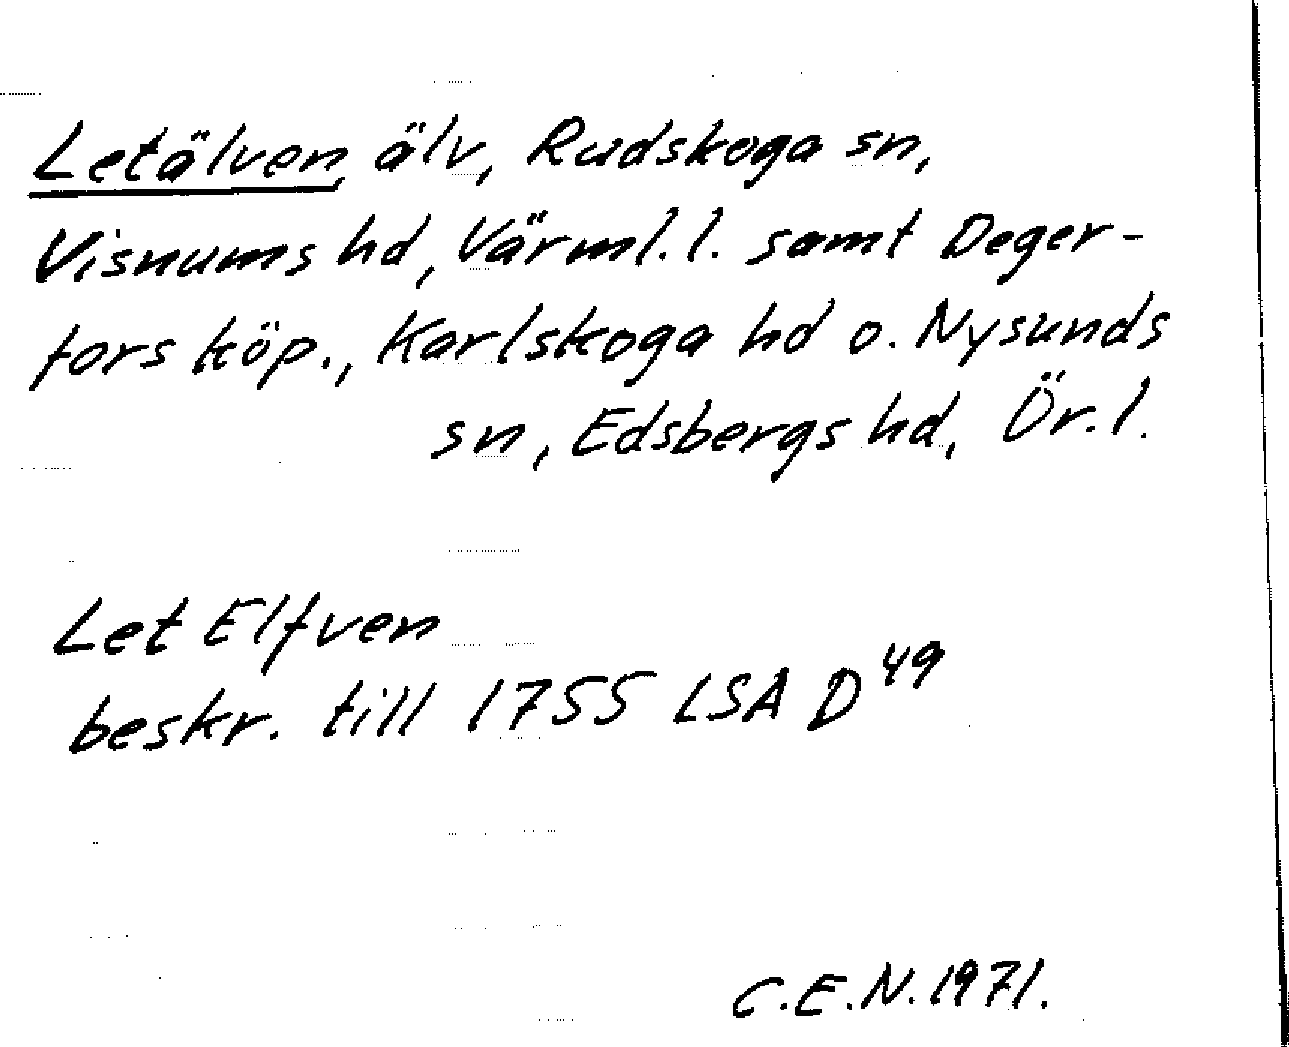 Letälven, älv, Rudskoga sn,
Visnums hd, Värml. l. samt Deger-
fors köp., Karlskoga hd o. Nysunds
sn, Edsbergs hd, Ör. l.
Let Elfven
beskr. till 1755 LSA D 49
C.E.N. 1971.